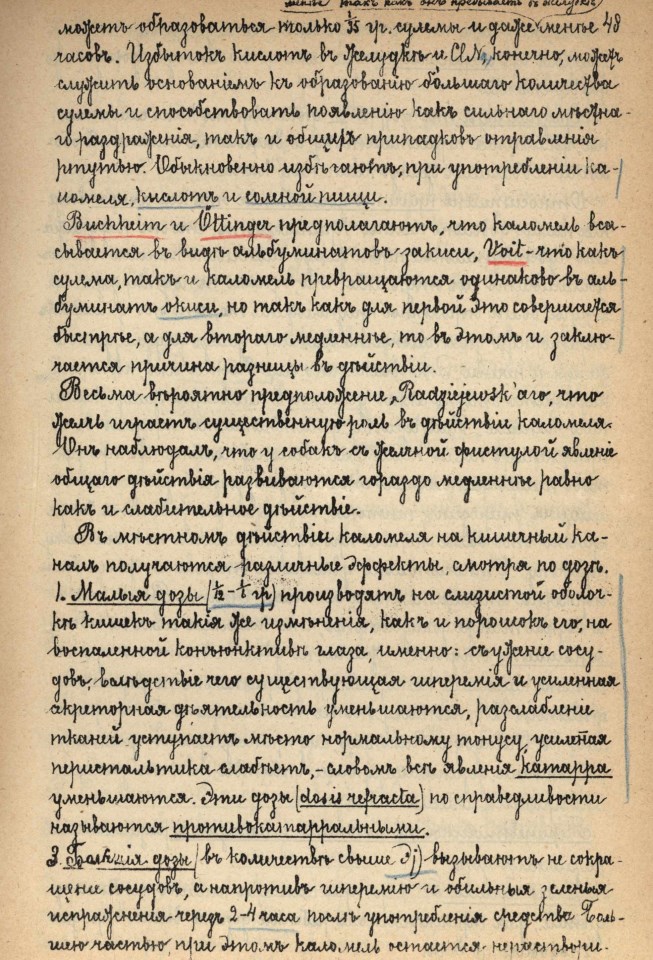 такъ какъ онъ пребываетъ въ желудкѣ)
можетъ образоваться только 1/35 гр. сулемы и даже менѣе 48
часовъ. Избытокъ кислотъ въ желудкѣ и ClNa, конечно, можетъ
служить основаніемъ къ образованію бо́льшаго количества
сулемы и способствовать появленію какъ сильнаго мѣстна-
го раздраженія, такъ и общихъ припадковъ отравленія
ртутью. Обыкновенно избѣгаютъ, при употребленіи ка-
ломеля, кислотъ и соленой пищи.
Buchheim и Öttinger предполагаютъ, что каломель вса-
сывается въ видѣ альбуминатовъ закиси, Voit - что какъ
сулема, такъ и каломель превращаются одинаково въ аль-
буминатъ окиси, но такъ какъ для первой это совершается
быстрѣе, а для втораго медленнѣе, то въ этомъ и заклю-
чается причина разницы въ дѣйствіи.
Весьма вѣроятно предположеніе Radziejewsk'аго, что
желчь играетъ существенную роль въ дѣйствіи каломеля.
Онъ наблюдалъ, что у собакъ съ желчной фистулой явленіе
общаго дѣйствія развиваются гораздо медленнѣе равно
какъ и слабительное дѣйствіе.
Въ мѣстномъ дѣйствіи каломеля на кишечный ка-
налъ получаются различные эффекты, смотря по дозѣ.
1. Малыя дозы (1/12 - 1/6 гр) производятъ на слизистой оболоч-
кѣ кишекъ такія же измѣненія, какъ и порошокъ его, на
воспаленной конъюнктивѣ глаза, именно: съуженіе сосу-
довъ, вслѣдствіе чего существующая гиперемія и усиленная
секреторная дѣятельность уменьшаются, разслабленіе
тканей уступаетъ мѣсто нормальному тонусу, усиленная
перистальтика слабѣетъ, - словомъ всѣ явленія катарра
уменьшаются. Эти дозы (dosis refracta) по справедливости
называются противокатарральными.
3. Большія дозы (въ количествѣ свыше ℈j) вызываютъ не сокра-
щеніе сосудовъ, а напротивъ гиперемію и обильныя зеленыя
испражненія черезъ 2-4 часа послѣ употребленія средства. Боль-
шею частью, при этомъ каломель остается нераствори-